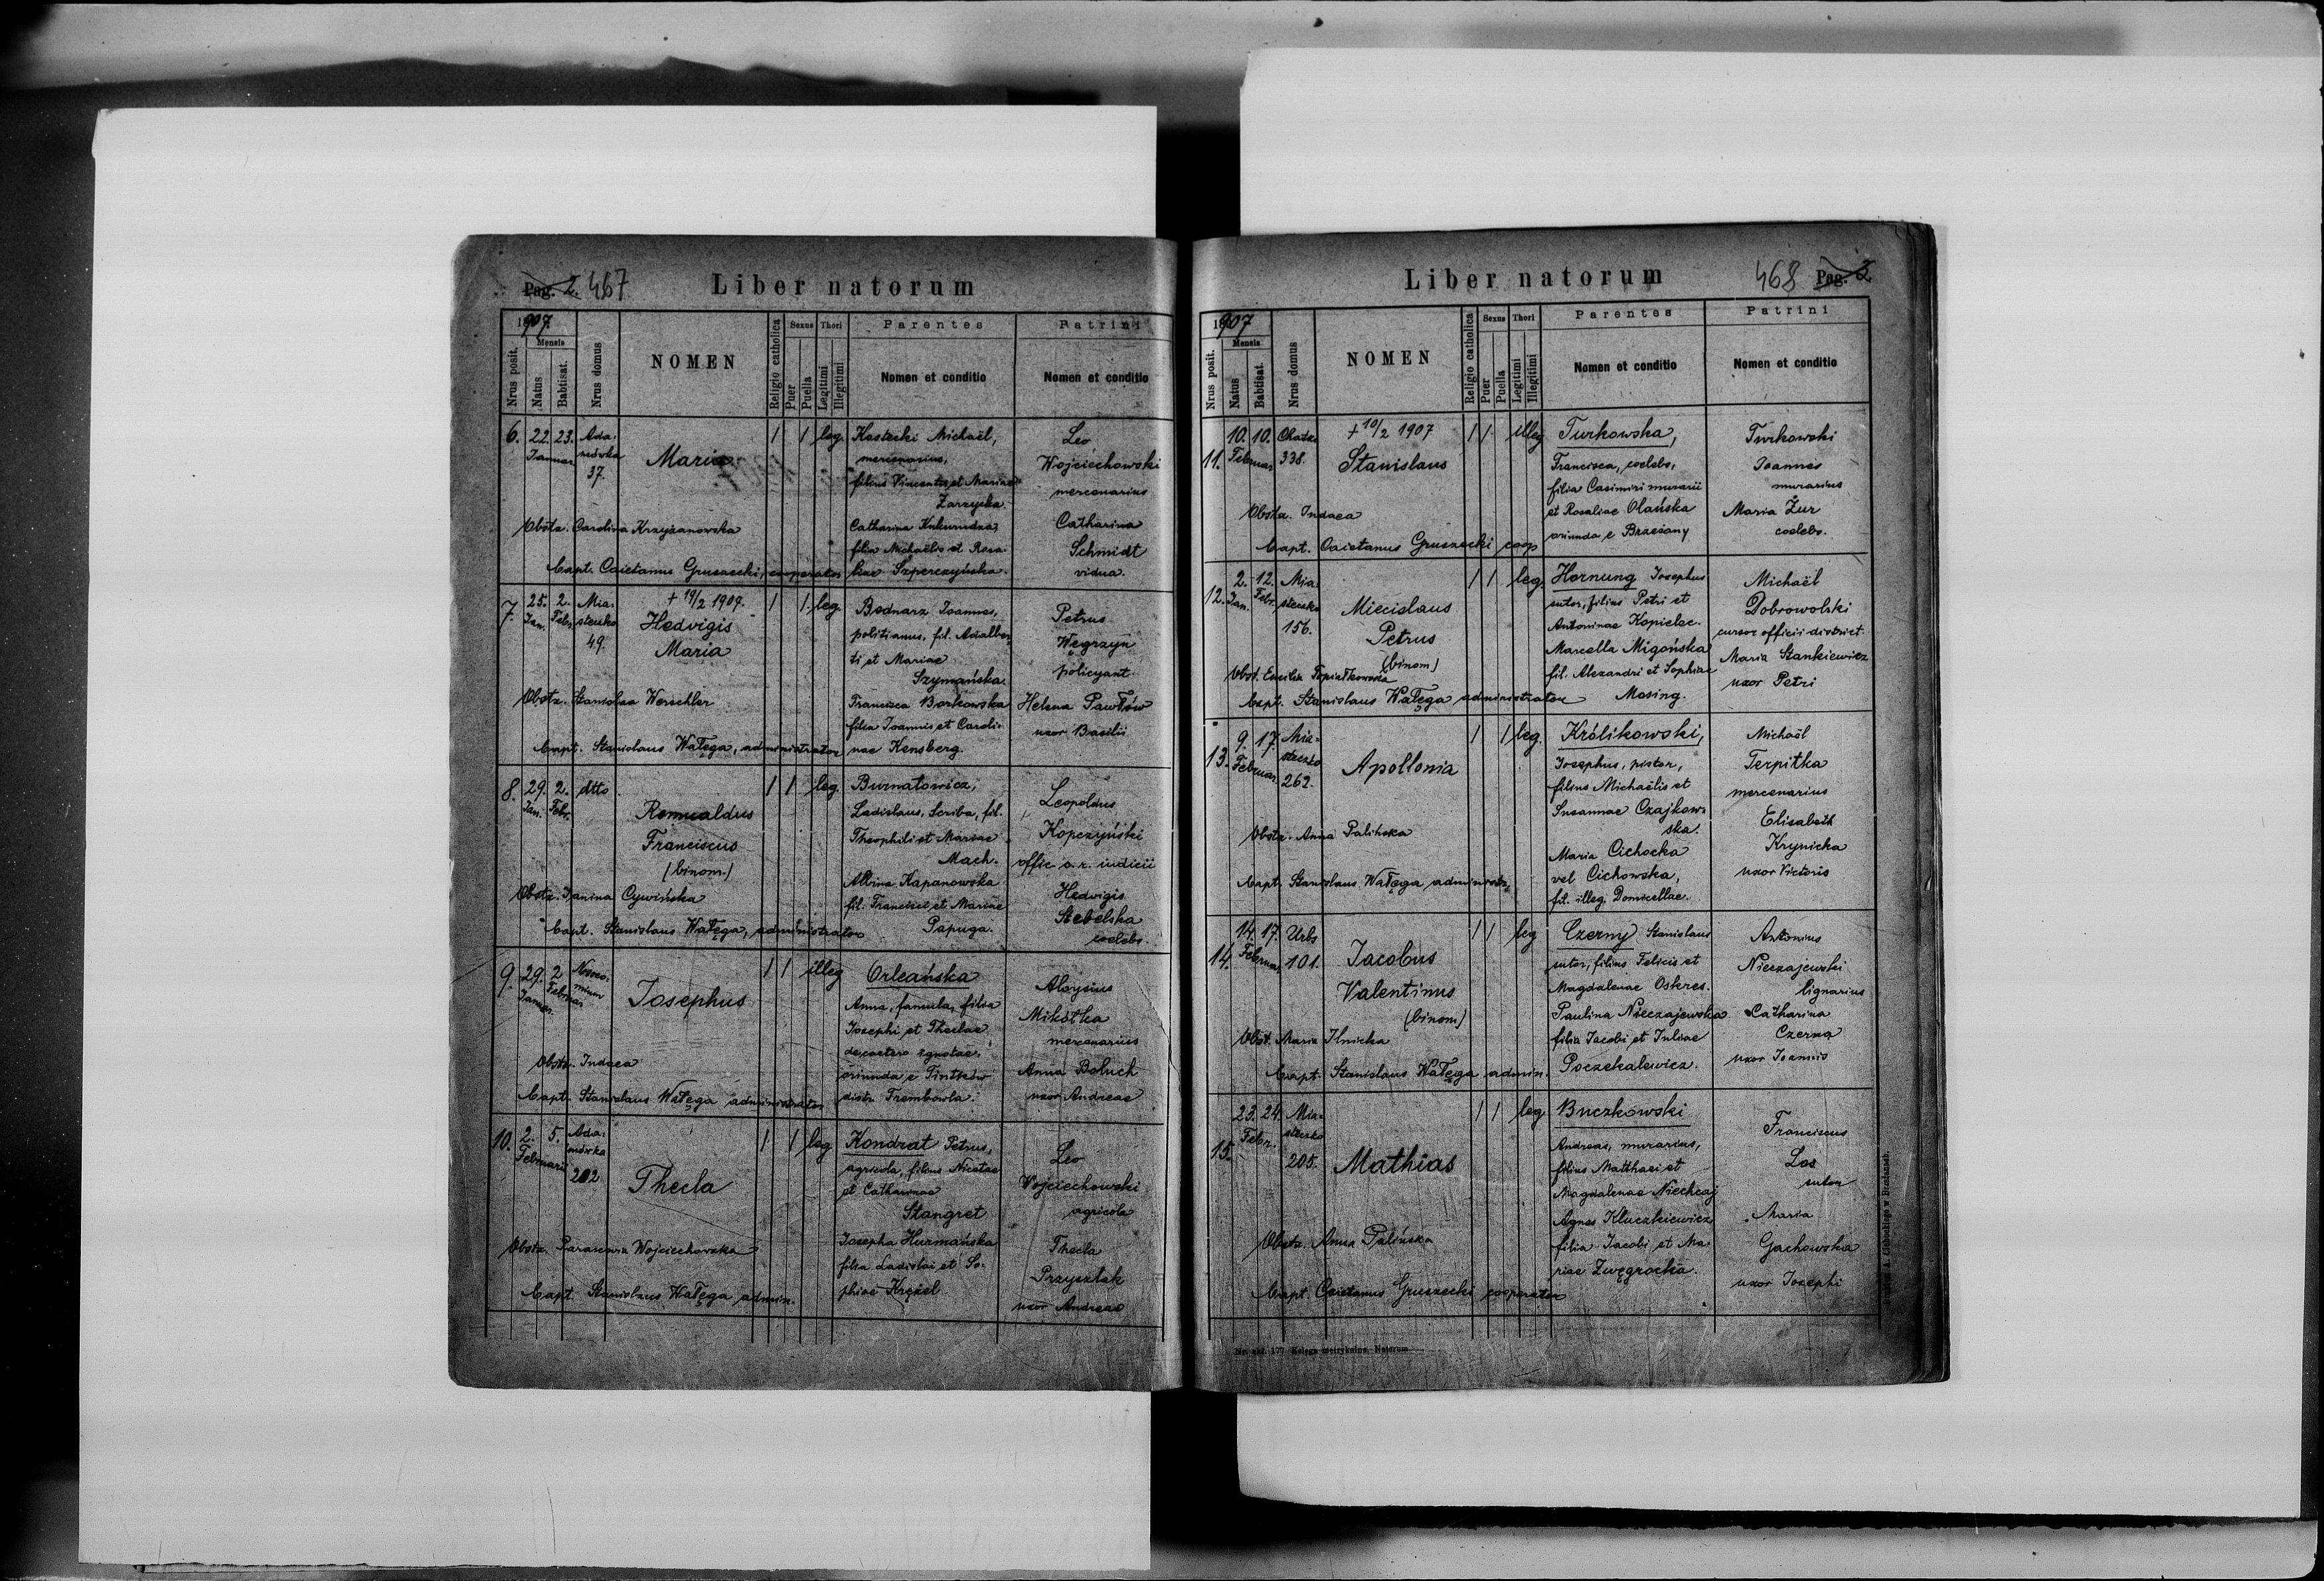 Pag. 2. 467
Liber natorum
1907.
Nrus posit.
Mensis
Natus
Babtisat.
Nrus domus
NOMEN
Religio catholica
Sexus
Puer
Puella
Thori
Legitimi
Illegitimi
Parentes
Nomen et conditio
Patrini
Nomen et conditio
6. 22. 23. Januar. Adamówka 37.
Maria
1 1 leg.
Kostecki Michaël,
mercenarius,
filius Vincentii et Mariae
Zarzycka.
Catharina Kukurudza,
filia Michaëlis et Rosa-
liae Szperczyńska.
Leo
Wojciechowski
mercenarius
Catharina
Schmidt
vidua.
Obstr. Carolina Krzyżanowska
bapt. Caietanus Gruszecki, cooperator
7. 25. Jan. 2. Febr. Miasteczko 49.
+ 19/2 1909.
Hedvigis
Maria
1 1 leg.
Bednarz Joannes,
politianus, fil. Adalber-
ti et Mariae
Szymańska.
Francisca Borkowska
filia Joannis et Caroli-
nae Kensberg.
Petrus
Węgrzyn
policyant.
Helena Pawłów
uxor Basilii
Obstr. Stanislaa Werschler
bapt. Stanislaus Wałęga, administrator
8. 29. Jan. 2. Febr. dtto
Romualdus
Franciscus
(binom.)
1 1 leg
Burnatowicz,
Ladislaus, scriba, fil.
Theophili et Mariae
Mach.
Albina Kapanowska
fil. Francisci et Mariae
Papuga.
Leopoldus
Kopczyński
offic. c. r. iudicii
Hedvigis
Stebelska
coelebs.
Obstr. Janina Cywińska
bapt. Stanislaus Wałęga, administrator
9. 29. Januar. 2 Februar. Nosocomium
Josephus
1 1 illeg
Orleańska
Anna, famula, filia
Josephi et Theclae
de caetero ignotae,
oriunda e Tintków
distr. Trembowla.
Aloysius
Mikitka
mercenarius
Anna Boluch
uxor Andreae
Obstr. Judaea
bapt. Stanislaus Wałęga administrator
10. 2. 5. Februarii Adamówka 202
Thecla
1 1 leg
Kondrat Petrus,
agricola, filius Nicetae
et Catharinae
Stangret
Josepha Hurmańska
filia Ladislai et So-
phiae Krężel
Leo
Wojciechowski
agricola
Thecla
Przysztak
uxor Andreae
Obstr. Parascevia Wojciechowska
bapt. Stanislaus Wałęga admin.
Liber natorum
468 Pag. 3
1907
Nrus posit.
Mensis
Natus
Babtisat.
Nrus domus
NOMEN
Religio catholica
Sexus
Puer
Puella
Thori
Legitimi
Illegitimi
Parentes
Nomen et conditio
Patrini
Nomen et conditio
11. 10. 10. Februar 338.
+ 10/2 1907
Stanislaus
1 1 illeg
Turkowska,
Francisca, coelebs,
filia Casimiri murarii
et Rosaliae Olańska
oriunda e Brzeżany
Turkowski
Joannes
murarius
Maria Żur
coelebs.
Obstr. Judaea
bapt. Caietanus Gruszecki coop
12. 2. Jan. 12. Febr. Miasteczko 156.
Miecislaus
Petrus
(binom)
1 1 leg
Hornung Josephus
sutor, filius Petri et
Antoninae Kopielec.
Marcella Migońska
fil. Alexandri et Sophiae
Mosing.
Michaël
Dobrowolski
cursor officii district.
Maria Stankiewicz
uxor Petri
bapt. Stanislaus Wałęga administrator
13. 9. 17. Februar. Miasteczko 262.
Apollonia
1 1 leg.
Królikowski,
Josephus, pistor,
filius Michaëlis et
Susannae Czajkow-
ska.
Maria Cichocka
vel Cichowska,
fil. illeg. Domicellae.
Michaël
Terpitka
mercenarius
Elisabeth
Krynicka
uxor Victoris
Obstr. Anna Palińska
bapt. Stanislaus Wałęga administr.
14. 14. 17. Februar. Urbs 101.
Jacobus
Valentinus
(binom)
1 1 leg
Czerny Stanislaus
sutor, filius Felicis et
Magdalenae Oskres.
Paulina Nieczajewska
filia Jacobi et Juliae
Poczekalewicz.
Antonius
Nieczajewski
lignarius
Catharina
Czerna
uxor Joannis
Obst. Maria Ilnicka
bapt. Stanislaus Wałęga admin.
15. 23. 24. Febr. Miasteczko 205.
Mathias
1 1 leg
Buczkowski
Andreas, murarius,
filius Matthaei et
Magdalenae Niechcaj
Agnes Kluczkiewicz
filia Jacobi et Ma-
riae Zwęgrocka.
Franciscus
Los
sutor
Maria
Gachowska
uxor Josephi
Obstr. Anna Palińska
bapt. Caietanus Gruszecki cooperator
177 Księga metrykalna. Natorum